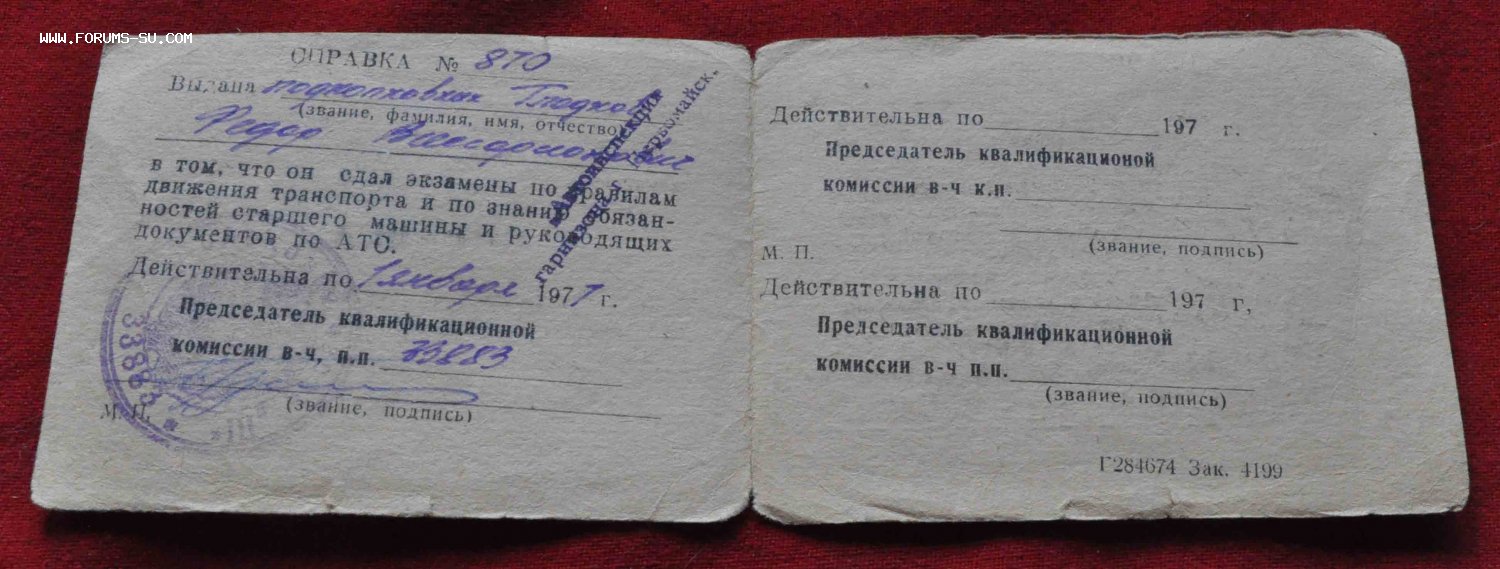 WWW.FORUMS-SU.COM
СПРАВКА № 870
Выдана подполковник
(звание, фамилия, имя, отчество)
Федор
в том, что он сдал экзамены по правилам
движения транспорта и по знанию обязан-
ностей старшего машины и руководящих
документов по АТС.
Действительна по 1 января 1977 г.
Председатель квалификационной
комиссии в-ч, п.п. 33883
(звание, подпись)
М. П.
33883
Автоинспекция
гарнизона г. Первомайск.
Действительна по 197 г.
Председатель квалификационой
комиссии в-ч к.п.
(звание, подпись)
М. П.
Действительна по 197 г,
Председатель квалификационной
комиссии в-ч п.п.
(звание, подпись)
Г284674 Зак. 4199